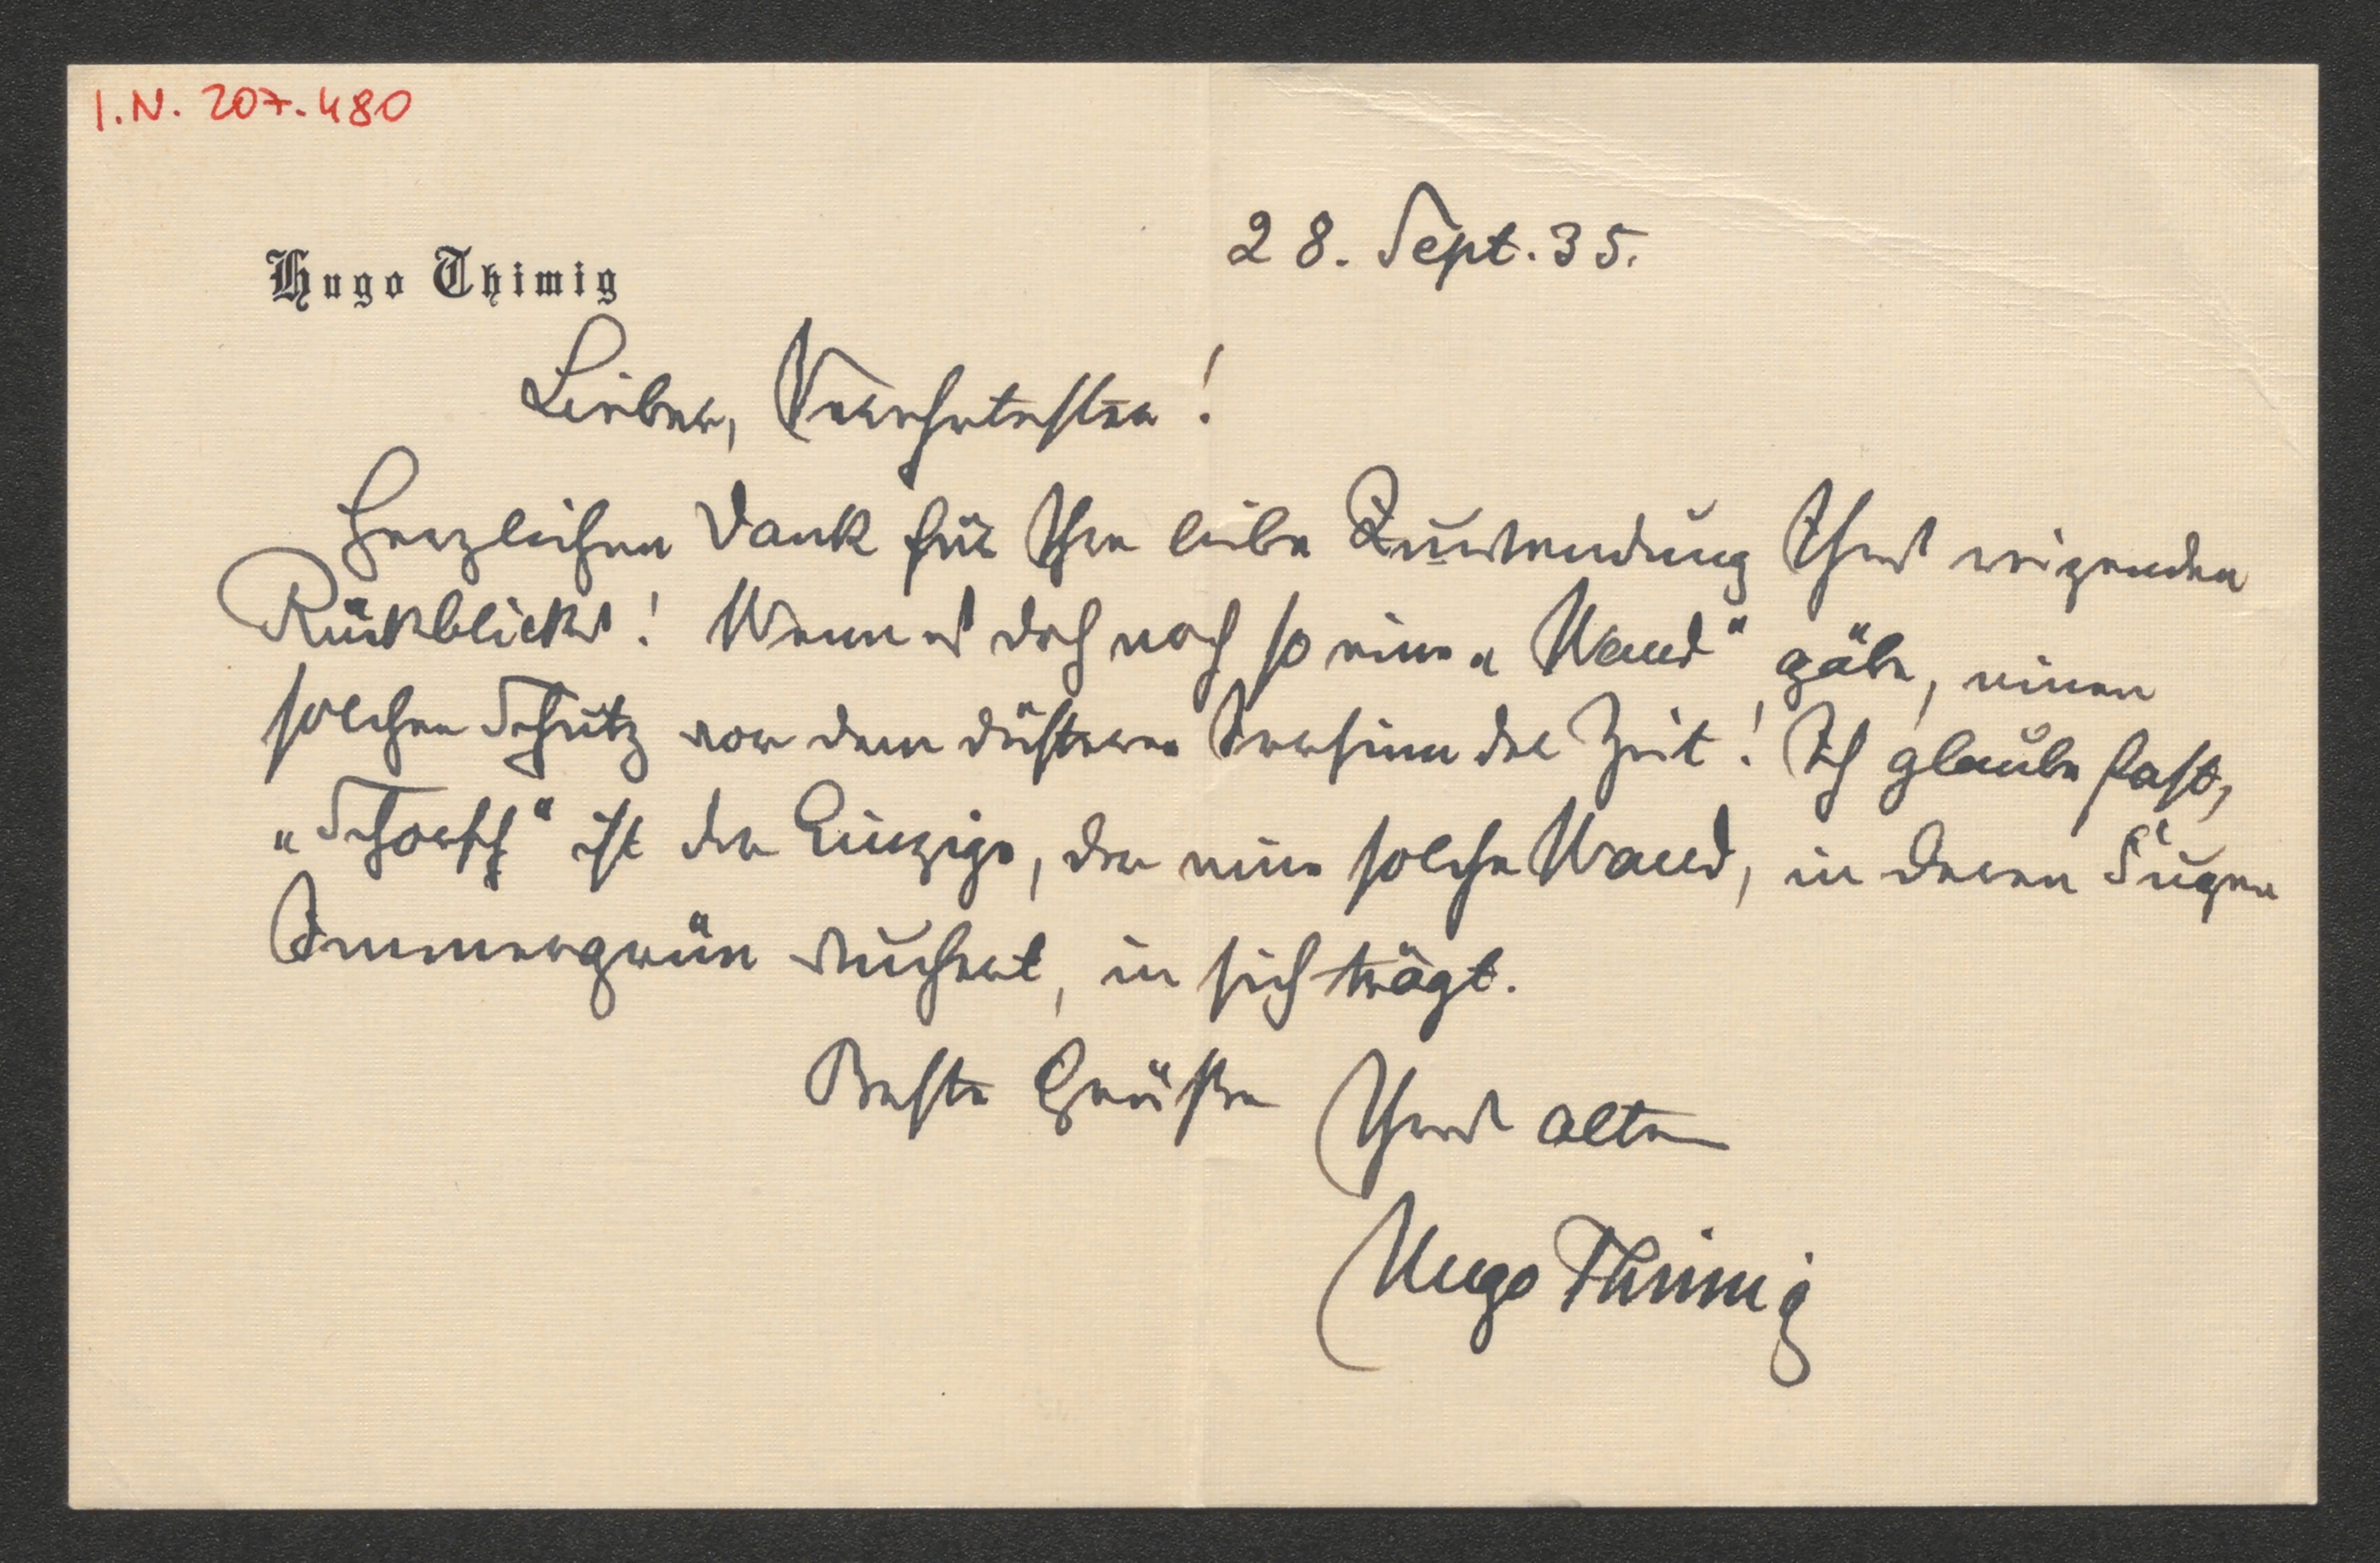 I.N. 207.480
28. Sept. 35.
Hugo Thimig
Lieber, Verehrtester!
Herzlichen Dank für Ihre liebe Zuwendung Ihres reizenden
Rückblickes! Wenn es doch noch so eine „Wand“ gäbe, einen
solchen Schutz vor dem düsteren Irrsinn der Zeit! Ich glaube fast,
„Schorsch“ ist der Einzige, der eine solche Wand, in deren Fugen
Immergrün wuchert, in sich trägt.
Beste Grüße
Ihres alten
Hugo Thimig